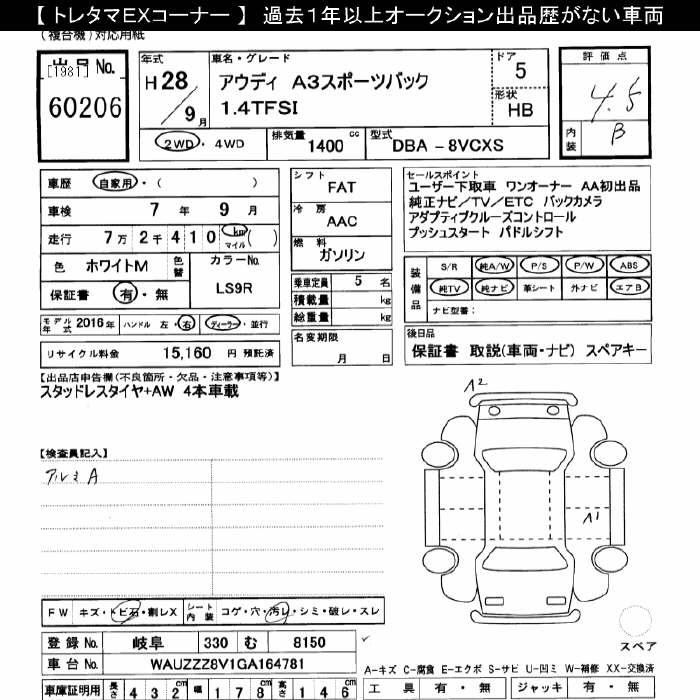 【トレタマEXコーナー】 過去１年以上オークション出品歴がない車両
(複合機)対応用紙
出品 No.
[1981]
60206
年式
H 28
／9月
車名・グレード
アウディ A3スポーツバック
1.4TFSI
ドア
5
形状
HB
評価点
4.5
内装
B
2WD・4WD
排気量 1400 cc
型式 DBA －8VCXS
車歴 自家用・( )
車検 7 年 9 月
走行 7万 2千 4 1 0 km マイル ( )
色 ホワイトM 色替
カラーNo.
LS9R
保証書 有・無
シフト
FAT
冷房
AAC
燃料
ガソリン
乗車定員 5 名
積載量 kg
総重量 kg
名変期限
月 日
セールスポイント
ユーザー下取車 ワンオーナー AA初出品
純正ナビ／TV／ETC バックカメラ
アダプティブクルーズコントロール
プッシュスタート パドルシフト
装備品
S/R 純A/W P/S P/W ABS
純TV 純ナビ 革シート 外ナビ エアB
ナビ型番：
モデル年式 2016年 ハンドル 左・右 ディーラー・並行
リサイクル料金 15,160 円 預託済
後日品
保証書 取説(車両・ナビ) スペアキー
【出品店申告欄(不良箇所・欠品・注意事項等)】
スタッドレスタイヤ+AW 4本車載
【検査員記入】
アルミ A
A2
A1
スペア
FW キズ・トビ石・割レX シート内装 コゲ・穴・汚レ・シミ・破レ・スレ
登録 No. 岐阜 330 む 8150
車台 No. WAUZZZ8V1GA164781
A-キズ C-腐食 E-エクボ S-サビ U-凹ミ W-補修 XX-交換済
車庫証明用 長さ 4 3 2 cm 幅 1 7 8 cm 高さ 1 4 6 cm
工具 有・無 ジャッキ 有・無